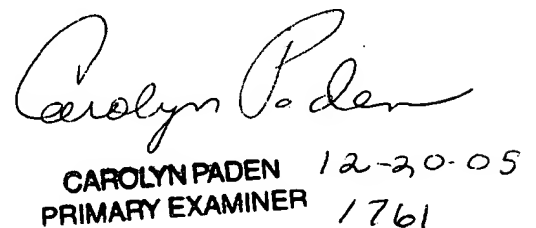 Carolyn Paden
CAROLYN PADEN 12-20-05
PRIMARY EXAMINER 1761